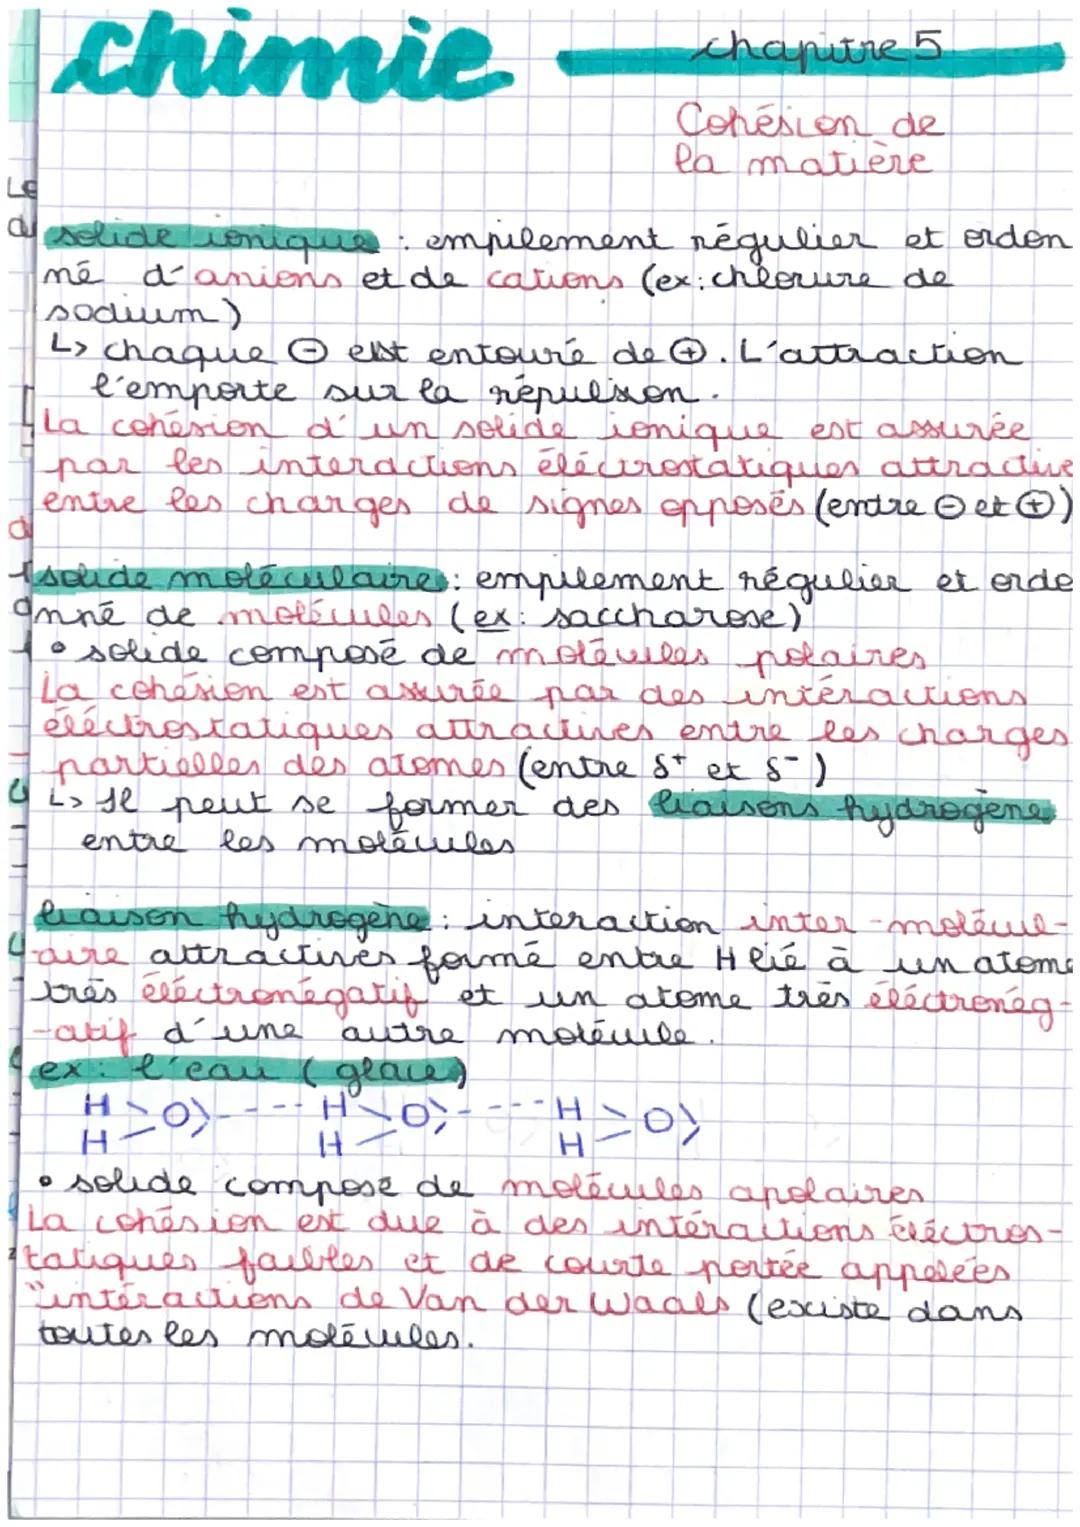 chimie
chapitre 5
Cohésion de
la matière
solide ionique : empilement régulier et ordon
né d'anions et de cations (ex: chlorure de
sodium)
↳ chaque ⊖ est entouré de ⊕. L'attraction
l'emporte sur la répulsion.
La cohésion d'un solide ionique est assurée
par les interactions éléctrostatiques attractive
entre les charges de signes opposés (entre ⊖ et ⊕)
solide moléculaire : empilement régulier et ordo
nné de molécules (ex: saccharose)
• solide composé de molécules polaires
La cohésion est assurée par des intéractions
éléctrostatiques attractives entre les charges
partielles des atomes (entre δ+ et δ-)
↳ Il peut se former des liaisons hydrogène
entre les molécules
liaison hydrogène : interaction inter-molécul-
-aire attractives formé entre H lié à un atome
très éléctronégatif et un atome très éléctronég-
-atif d'une autre molécule.
ex: l'eau (glace)
H O ---- H O ---- H O
H H H
• solide composé de molécules apolaires
La cohésion est due à des intéractions éléctros-
tatiques faibles et de courte portée appelées
"intéractions de Van der Waals (existe dans
toutes les molécules.